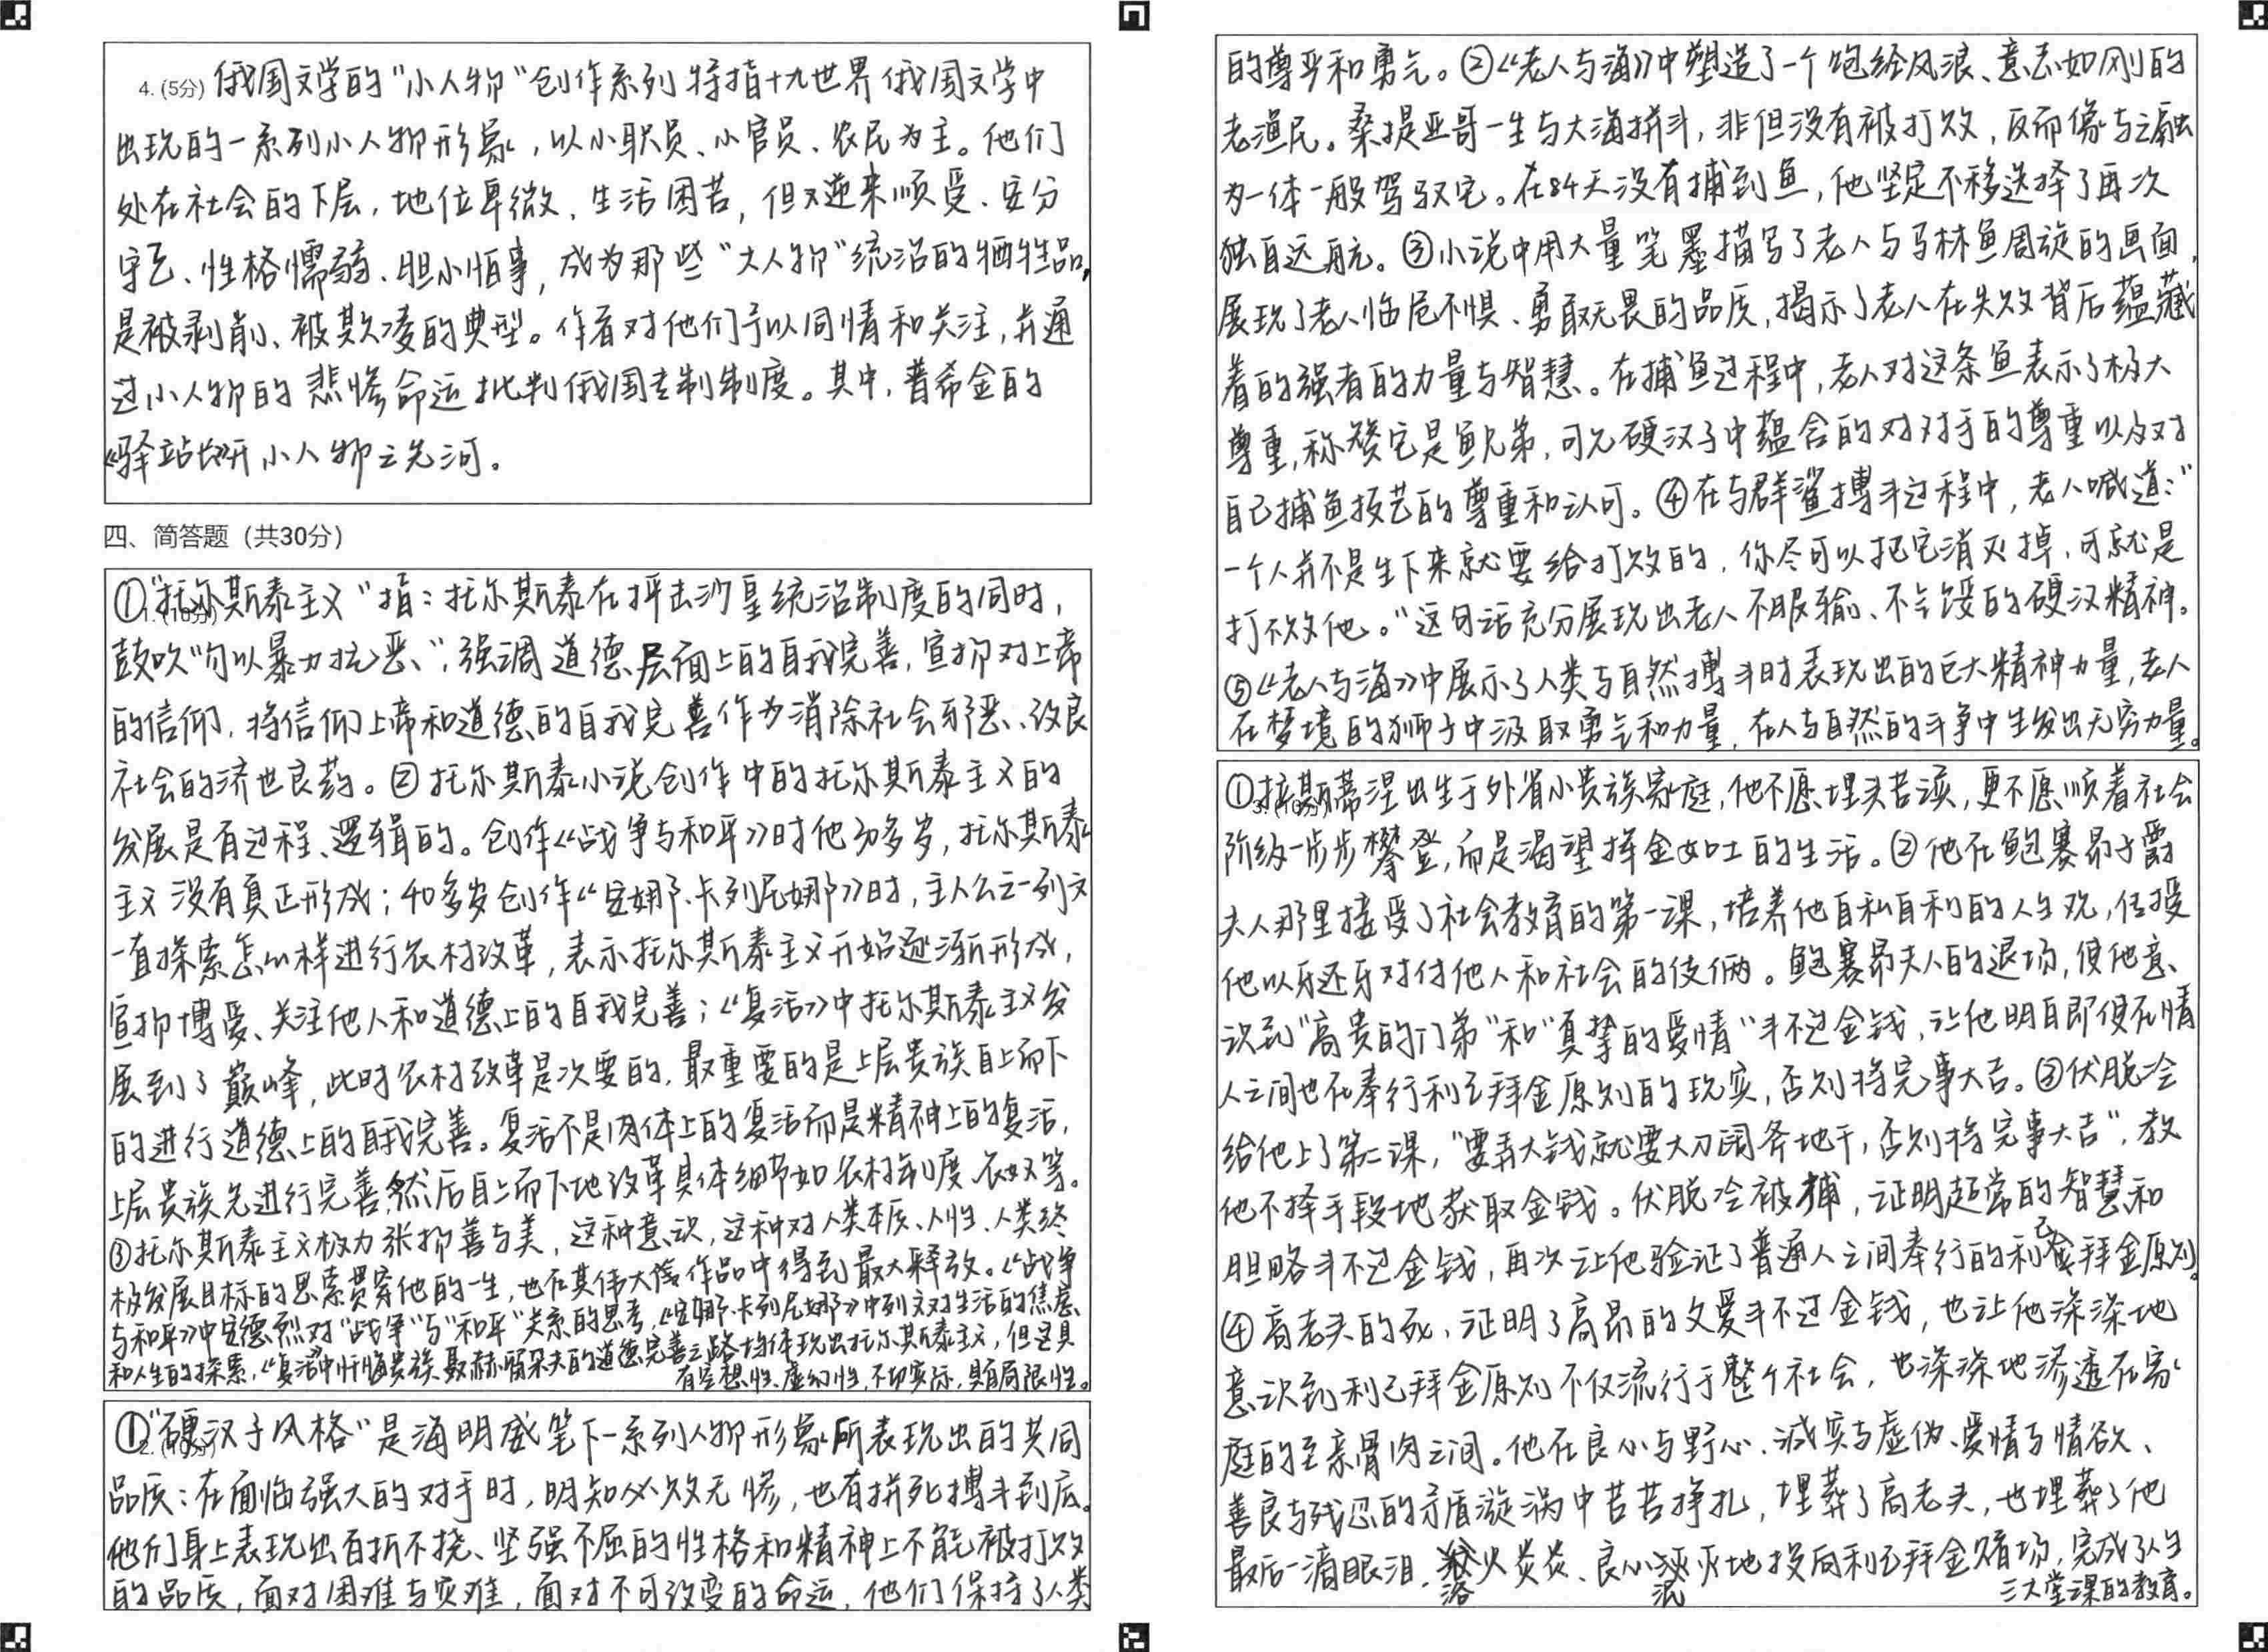 4. (5分) 俄国文学的“小人物”创作系列特指十九世界俄国文学中
出现的一系列小人物形象，以小职员、小官员、农民为主。他们
处在社会的下层，地位卑微、生活困苦，但又逆来顺受、安分
守己、性格懦弱、胆小怕事，成为那些“大人物”统治的牺牲品，
是被剥削、被欺凌的典型。作者对他们予以同情和关注，并通
过小人物的悲惨命运批判俄国专制制度。其中，普希金的
《驿站长》开小人物之先河。
四、简答题（共30分）
1. (10分)
①“托尔斯泰主义”指：托尔斯泰在抨击沙皇统治制度的同时，
鼓吹“勿以暴力抗恶”，强调道德层面上的自我完善，宣扬对上帝
的信仰，将信仰上帝和道德的自我完善作为消除社会邪恶、改良
社会的济世良药。②托尔斯泰小说创作中的托尔斯泰主义的
发展是有过程、逻辑的。创作《战争与和平》时他30多岁，托尔斯泰
主义没有真正形成；40多岁创作《安娜·卡列尼娜》时，主人公之一列文
一直探索怎么样进行农村改革，表示托尔斯泰主义开始逐渐形成，
宣扬博爱、关注他人和道德上的自我完善；《复活》中托尔斯泰主义发
展到了巅峰，此时农村改革是次要的，最重要的是上层贵族自上而下
的进行道德上的自我完善。复活不是肉体上的复活而是精神上的复活，
上层贵族先进行完善，然后自上而下地改革具体细节如农村制度、农奴等。
③托尔斯泰主义极力张扬善与美，这种意识，这种对人类本质、人性、人类终
极发展目标的思索贯穿他的一生，也在其伟大作品中得到最大释放。《战争
与和平》中安德烈对“战争”与“和平”关系的思考，《安娜·卡列尼娜》中列文对生活的焦虑
和人生的探索，《复活》中忏悔贵族聂赫留朵夫的道德完善之路均体现出托尔斯泰主义，但这具
有空想性、虚幻性，不切实际，具有局限性。
2. (10分)
①“硬汉子风格”是海明威笔下一系列人物形象所表现出的共同
品质：在面临强大的对手时，明知必败无惨，也有拼死搏斗到底。
他们身上表现出百折不挠、坚强不屈的性格和精神上不能被打败
的品质，面对困难与灾难，面对不可改变的命运，他们保持了人类
的尊严和勇气。②《老人与海》中塑造了一个饱经风浪、意志如刚的
老渔民。桑提亚哥一生与大海拼斗，非但没有被打败，反而像与之融
为一体一般驾驭它。在84天没有捕到鱼，他坚定不移选择了再次
独自远航。③小说中用大量笔墨描写了老人与马林鱼周旋的画面，
展现了老人临危不惧、勇敢无畏的品质，揭示了老人在失败背后蕴藏
着的强者的力量与智慧。在捕鱼过程中，老人对这条鱼表示了极大
尊重，称赞它是鱼兄弟，可见硬汉子中蕴含的对对手的尊重以及对
自己捕鱼技艺的尊重和认可。④在与群鲨搏斗过程中，老人喊道：“
一个人并不是生下来就要给打败的，你尽可以把它消灭掉，可就是
打不败他。”这句话充分展现出老人不服输、不气馁的硬汉精神。
⑤《老人与海》中展示了人类与自然搏斗时表现出的巨大精神力量，老人
在梦境的狮子中汲取勇气和力量，在人与自然的斗争中生发出无穷力量。
3. (10分)
①拉斯蒂涅出生于外省小贵族家庭，他不愿埋头苦读，更不愿顺着社会
阶级一步步攀登，而是渴望挥金如土的生活。②他在鲍赛昂子爵
夫人那里接受了社会教育的第一课，培养他自私自利的人生观，传授
他以牙还牙对付他人和社会的伎俩。鲍赛昂夫人的退场，使他意
识到“高贵的门第”和“真挚的爱情”斗不过金钱，让他明白即便在情
人之间也在奉行利己拜金原则的现实，否则将完事大吉。③伏脱冷
给他上了第二课，“要弄大钱就要大刀阔斧地干，否则将完事大吉”，教
他不择手段地获取金钱。伏脱冷被捕，证明超常的智慧和
胆略斗不过金钱，再次让他验证了普通人之间奉行的利己拜金原则。
④高老头的死，证明了高昂的父爱斗不过金钱，也让他深深地
意识到利己拜金原则不仅流行于整个社会，也深深地渗透在家
庭的至亲骨肉之间。他在良心与野心、诚实与虚伪、爱情与情欲、
善良与残忍的矛盾漩涡中苦苦挣扎，埋葬了高老头，也埋葬了他
最后一滴眼泪，欲火炎炎、良心泯灭地投向利己拜金赌场，完成了人生
三大堂课的教育。